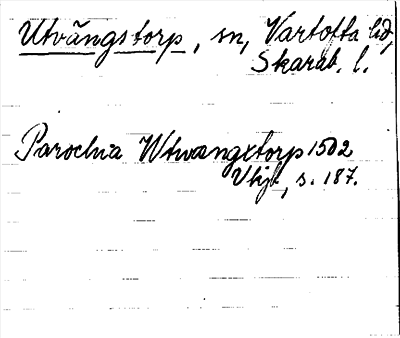 Utvängstorp, sn, Vartofta hd,
Skarab. l.
Parochia Wtwangxtorp 1502
s. 187.